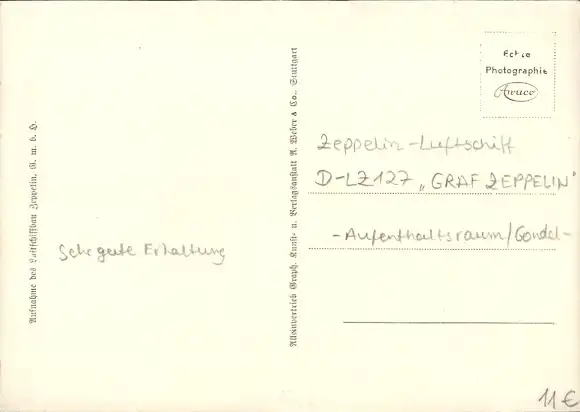 Aufnahme des Luftschiffbau Zeppelin, G. m. b. H.
Sehr gute Erhaltung
Alleinvertrieb Graph. Kunst- u. Verlagsanstalt A. Weber & Co., Stuttgart
Echte
Photographie
Awuco
Zeppelin-Luftschiff
D-LZ127 „GRAF ZEPPELIN"
-Aufenthaltsraum/Gondel-
11€